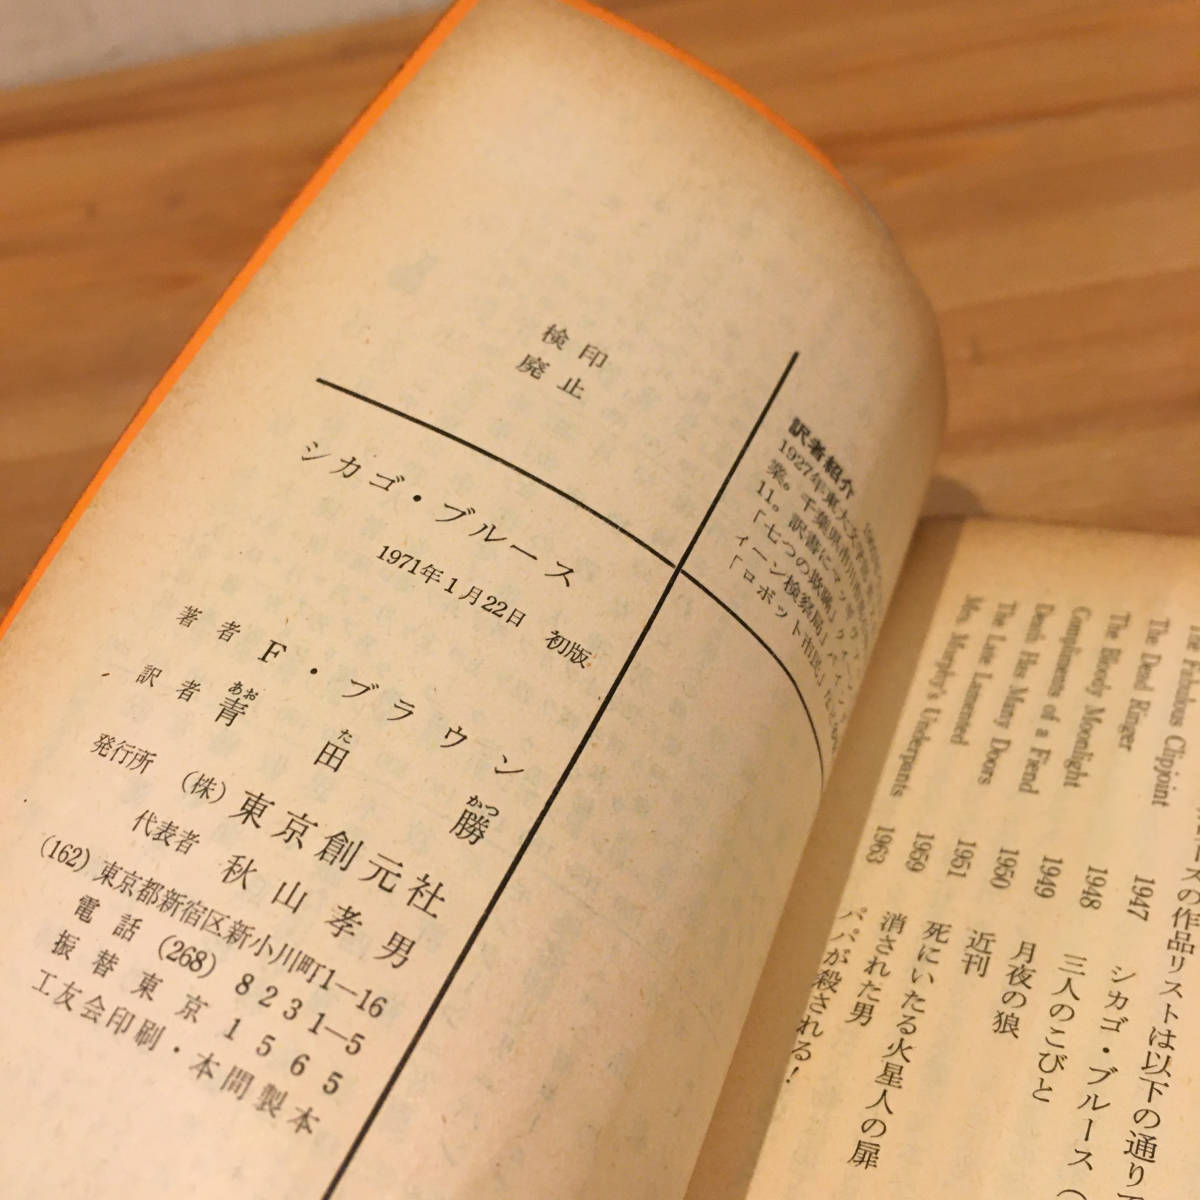 検印
廃止
訳者紹介
1927年東大文学部
業。千葉県市川市
11。訳書にマッギ
「七つの欺瞞」クイ
ィーン検察局」
「ロボット市民」
シカゴ・ブルース
1971年1月22日 初版
著者 F・ブラウン
訳者 青田勝
あお た かつ
発行所 (株)東京創元社
代表者 秋山孝男
(162)東京都新宿区新小川町1―16
電話(268)8231―5
振替東京1565
工友会印刷・本間製本
の作品リストは以下の通り
The Fabulous Clipjoint 1947 シカゴ・ブルース(
The Dead Ringer 1948 三人のこびと
The Bloody Moonlight 1949 月夜の狼
Compliments of a Fiend 1950 近刊
Death Has Many Doors 1951 死にいたる火星人の扉
The Late Lamented 1959 消された男
Mrs. Murphy's Underpants 1963 パパが殺される!